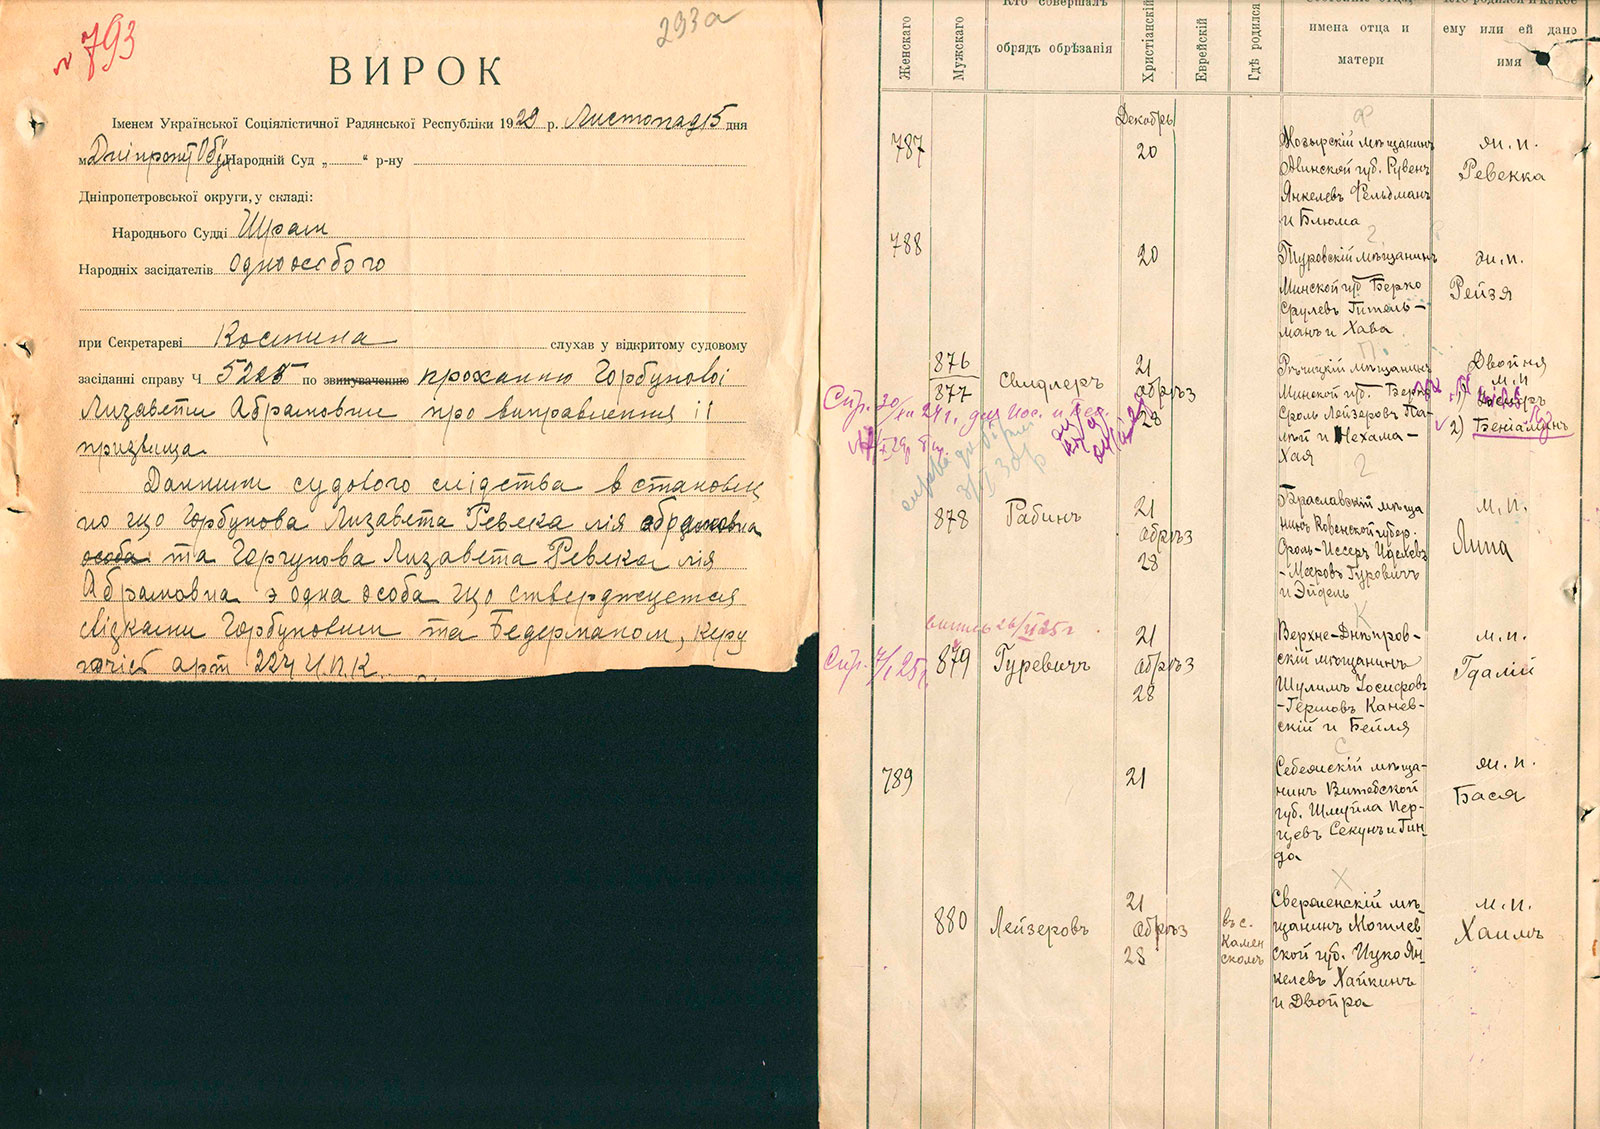 № 793
293а
ВИРОК
Іменем Української Соціялістичної Радянської Республіки 1929 р. Листопад 15 дня
м. Народній Суд „ “ р-ну
Дніпропетровської округи, у складі:
Народнього Судді Шрам
Народніх засідателів одноособого
при Секретареві Костина слухав у відкритому судовому
засіданні справу Ч 5225 по звинуваченню проханню Горбунової
Лизавети Абрамовни про виправлення її
призвища
Данними судового слідства в становле
но що Горбунова Лизавета Ревека лія
особа та Горгунова Лизавета Ревека лія
Абрамовна э одна особа що стверджується
свідками Горбуновим та Бедерманом, керу
ючись арт 224 Ц.П.К.
Женскаго
Мужскаго
Кто совершалъ
обрядъ обрѣзанія
Христіанскій
Еврейскій
Гдѣ родился
имена отца и
матери
Кто родился и какое
ему или ей дано
имя
Декабрь
787
20
Ф
Мозырскій мѣщанинъ
Минской губ. Рувенъ
Янкелевъ Фельдманъ
и Блюма
ж. п.
Ревекка
788
20
Г
Туровскій мѣщанинъ
Минской губ Берко
Срулевъ Гитель-
манъ и Хава
ж. п.
Рейзя
876
877
Свидлеръ
21
обрѣз
28
П
Рѣчицкій мѣщанинъ
Минской губ. Берко
Сроль Лейзеровъ Па-
и Нехама-
Хая
Двойня
м. п
1)
2) Беніаминъ
Спр. 20/XII 24 г. для Иос. и Бен.
878
Рабинъ
21
обрѣз
28
Г
Браславскій мѣща
нинъ Ковенской губер.
Сроль-Иссеръ
-Мееровъ Гуровичъ
и Эйдель
м. п.
Липа
выпись 26/VI 25 г
Спр. 7/I 25 г.
879
Гуревичъ
21
обрѣз
28
К
Верхне-Днѣпров-
скій мѣщанинъ
Шулимъ Іосифовъ
-Гершовъ Канев-
скій и Бейля
м. п.
Гдалій
789
21
С
Себежскій мѣща-
нинъ Витебской
губ. Шмуйла Пер-
цевъ Секунъ и Гин-
да
ж. п.
Бася
880
Лейзеровъ
21
обрѣз
28
въ с.
Камен
скомъ
Х
Сверженскій мѣ-
щанинъ Могилев-
ской губ. Ицко Ян-
келевъ Хайкинъ
и Двойра
м. п.
Хаимъ